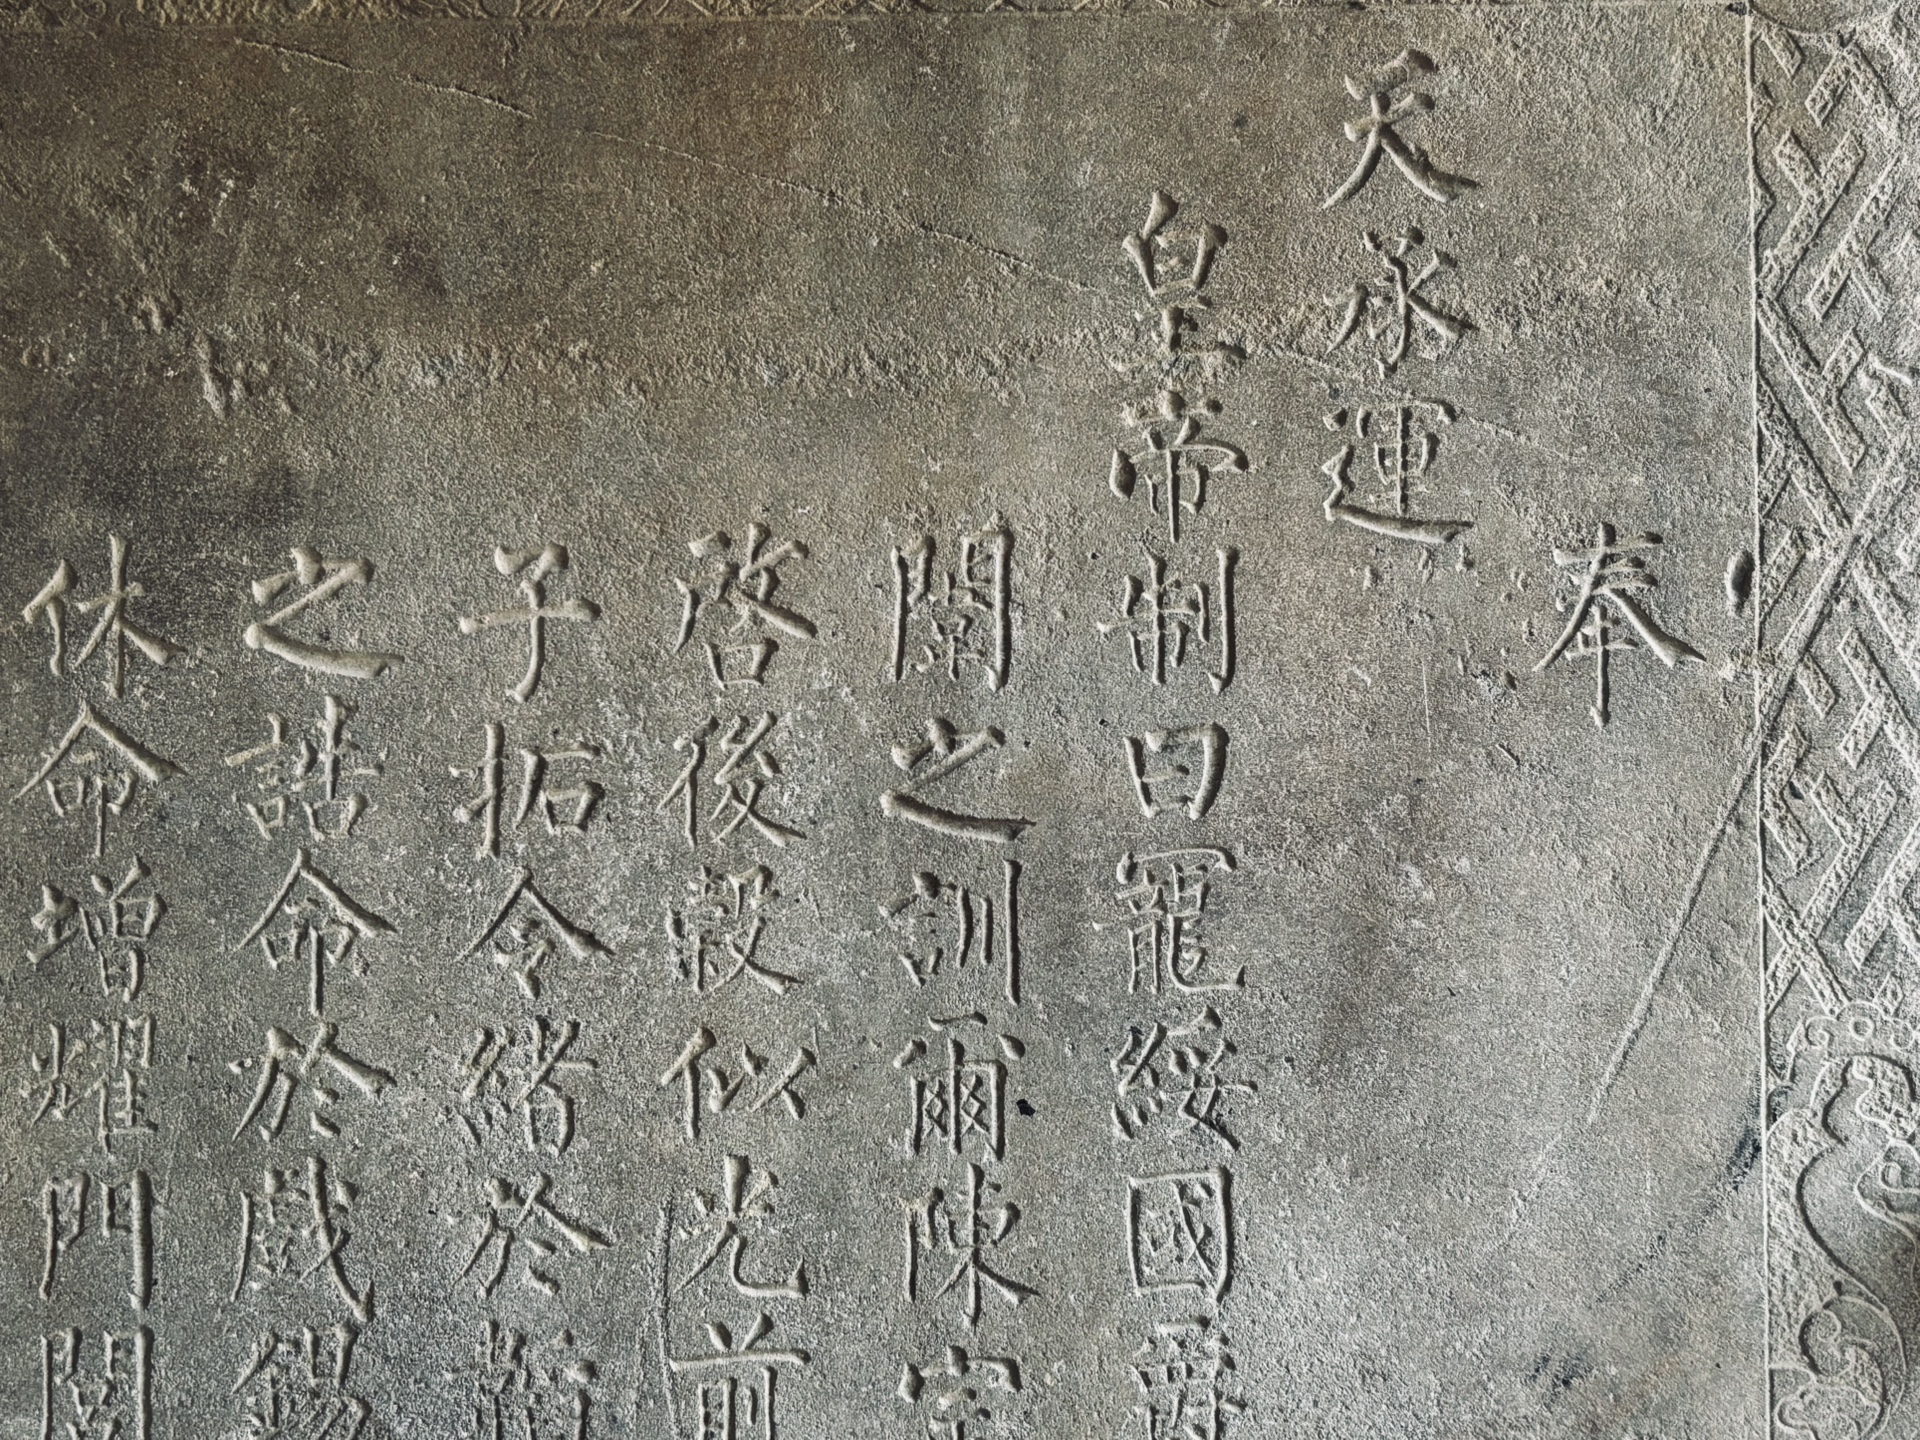 奉
天承運
皇帝制曰寵綏國爵
闈之訓爾陳宗
啓後穀似光前
子拓令緒於
之誥命於戲錫
休命增耀門閭